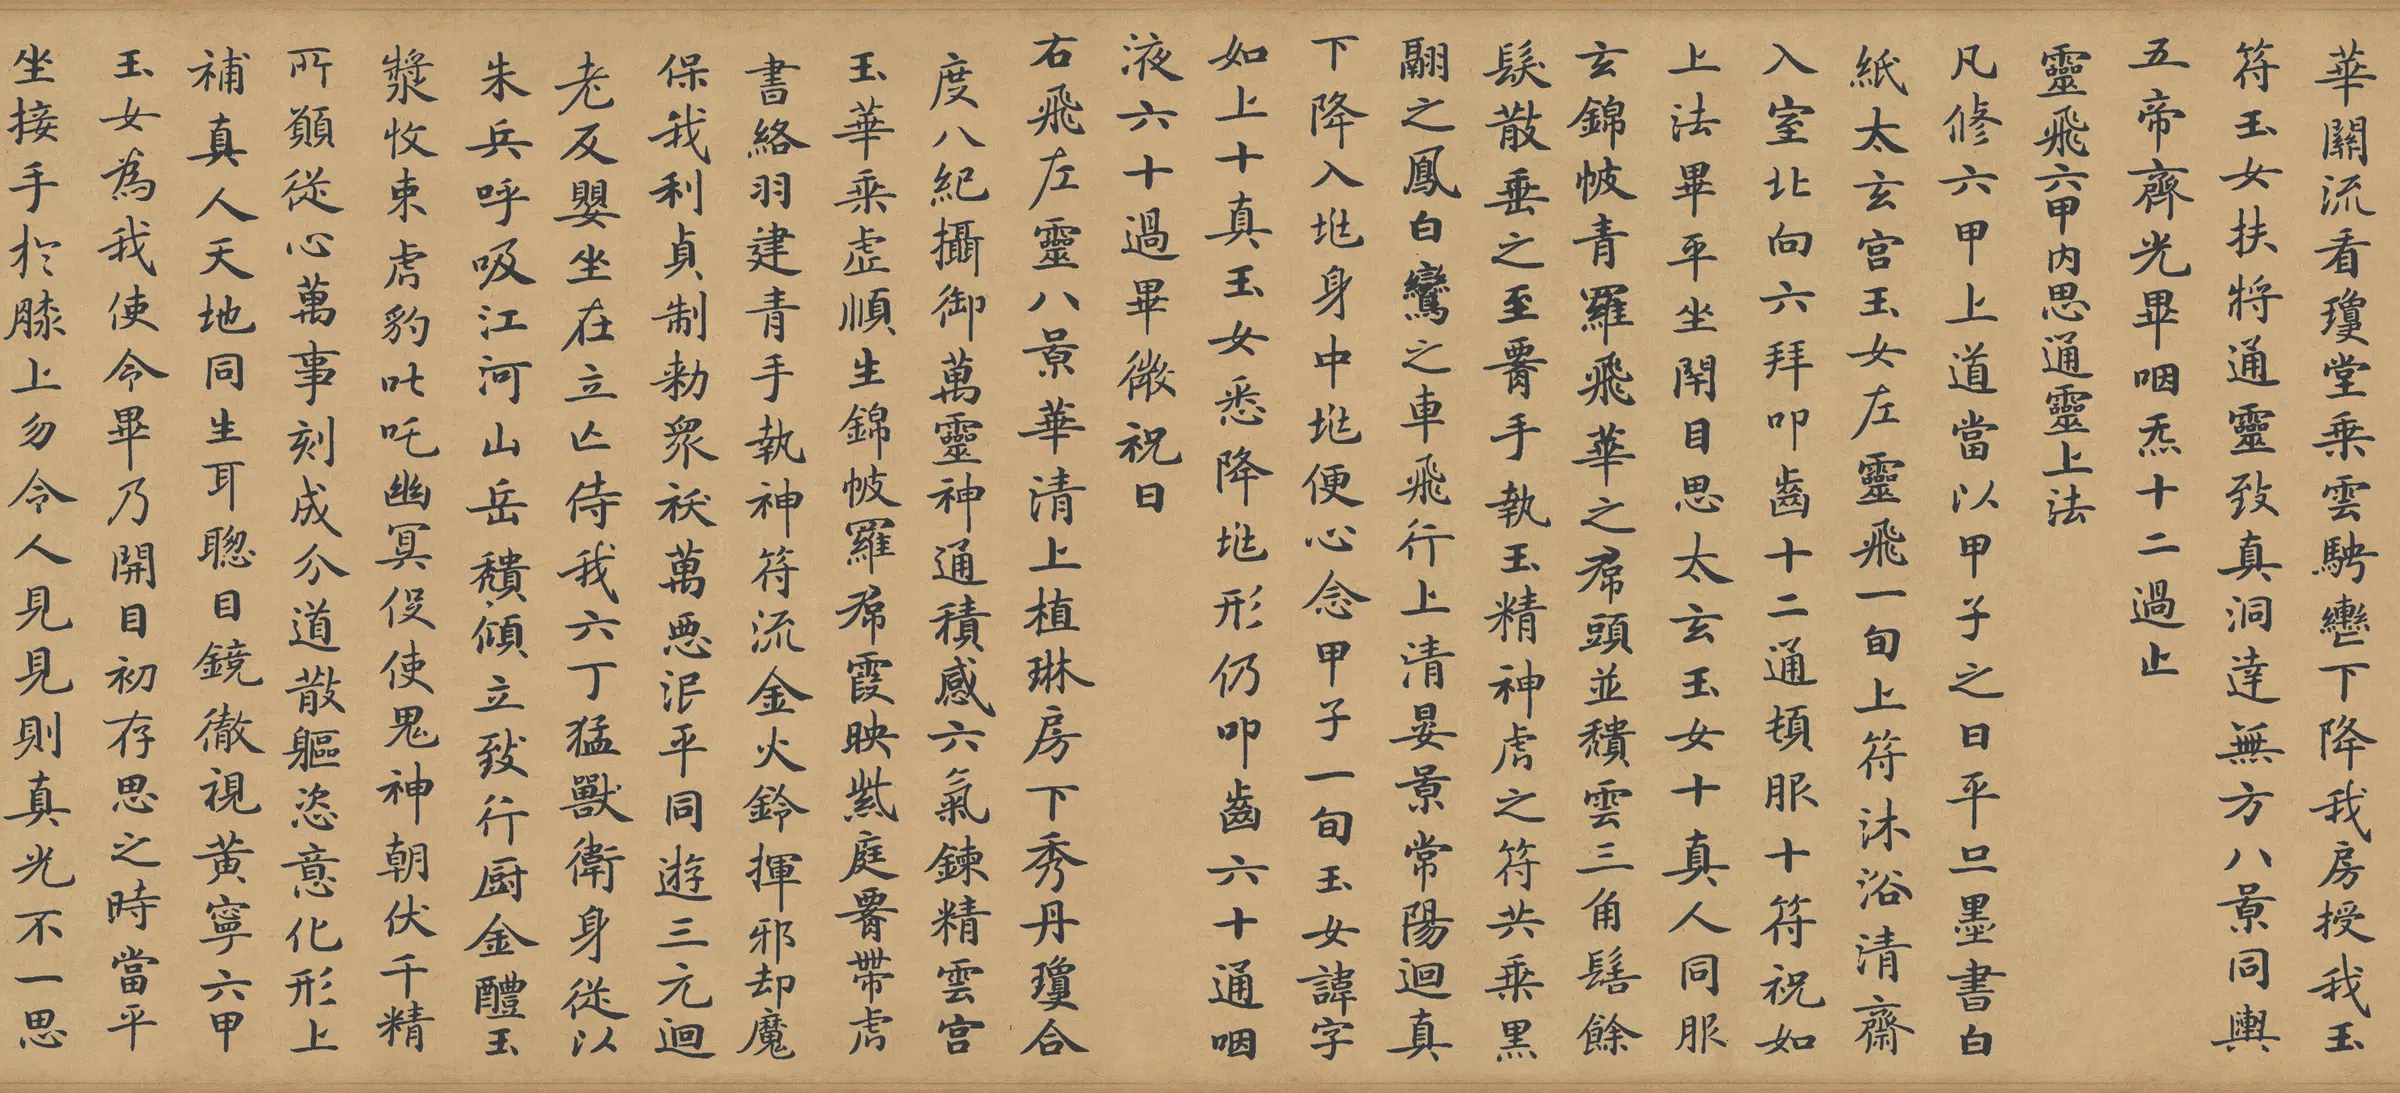 華關流看瓊堂乘雲騁轡下降我房授我玉
符玉女扶將通靈致真洞達無方八景同輿
五帝齊光畢咽炁十二過止
靈飛六甲內思通靈上法
凡修六甲上道當以甲子之日平旦墨書白
紙太玄宮玉女左靈飛一旬上符沐浴清齋
入室北向六拜叩齒十二通頓服十符祝如
上法畢平坐閇目思太玄玉女十真人同服
玄錦帔青羅飛華之帬頭並穨雲三角髻餘
髮散垂之至署手執玉精神虎之符共乘黑
翮之鳳白鸞之車飛行上清晏景常陽迴真
下降入𡉏身中𡉏便心念甲子一旬玉女諱字
如上十真玉女悉降𡉏形仍叩齒六十通咽
液六十過畢微祝曰
右飛左靈八景華清上植琳房下秀丹瓊合
度八紀攝御萬靈神通積感六氣鍊精雲宮
玉華乘虛順生錦帔羅帬霞映紫庭署帶虎
書絡羽建青手執神符流金火鈴揮邪却魔
保我利貞制勑眾祅萬惡泯平同遊三元迴
老反嬰坐在立亾侍我六丁猛獸衛身從以
朱兵呼吸江河山岳穨傾立致行廚金醴玉
漿收束虎豹叱吒幽冥役使鬼神朝伏千精
所願從心萬事剋成分道散軀恣意化形上
補真人天地同生耳聰目鏡徹視黃寧六甲
玉女為我使令畢乃開目初存思之時當平
坐接手於膝上勿令人見見則真光不一思